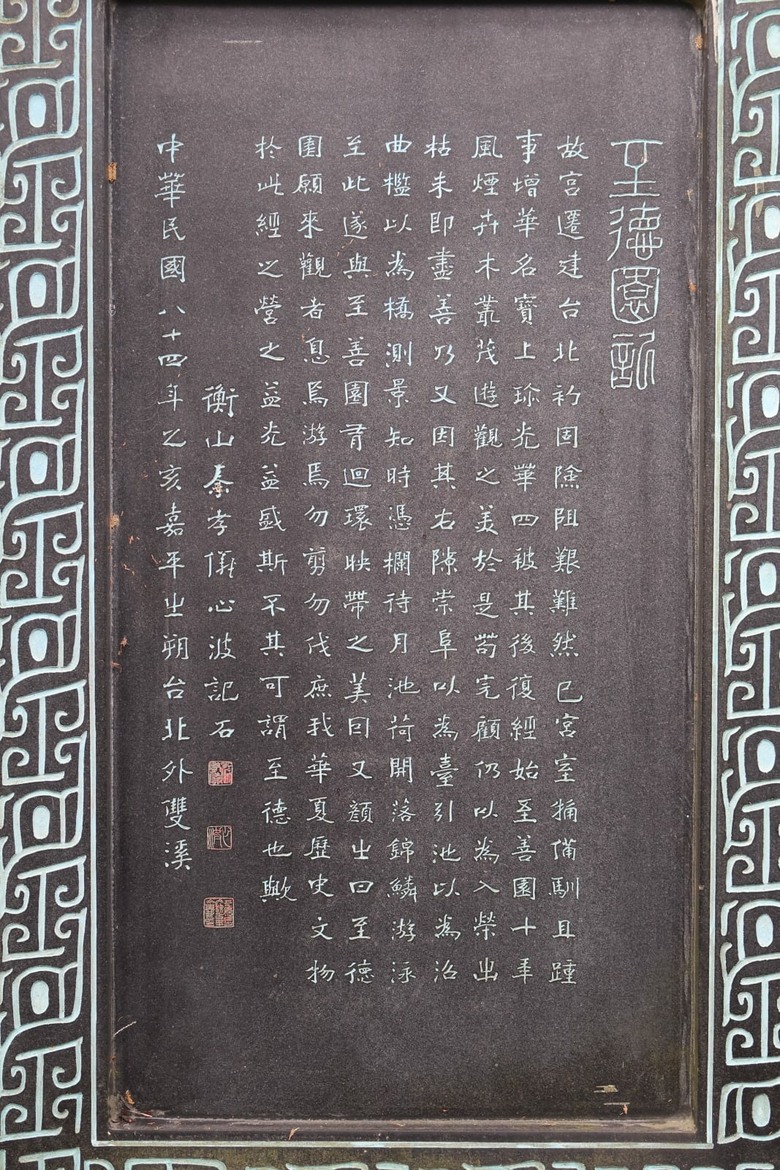 至德園記
故宮遷建台北礿固險阻艱難然已宮室捅備馴且踵
事增華名寶上珍光華四被其後復經始至善園十年
風煙卉木叢茂遊觀之美於是茍完顧仍以為入榮出
枯未即盡善乃又因其右隙崇阜以為臺引池以為沼
曲檻以為橋測景知時憑欄待月池荷開落錦鱗游泳
至此遂與至善園肓迴環映帶之美因又顏之曰至德
園願來觀者息焉游焉勿剪勿伐庶我華夏歷史文物
於此經之營之益光益盛斯不其可謂至德也歟
衡山秦孝儀心波記石
中華民國八十四年乙亥嘉平之朔台北外雙溪